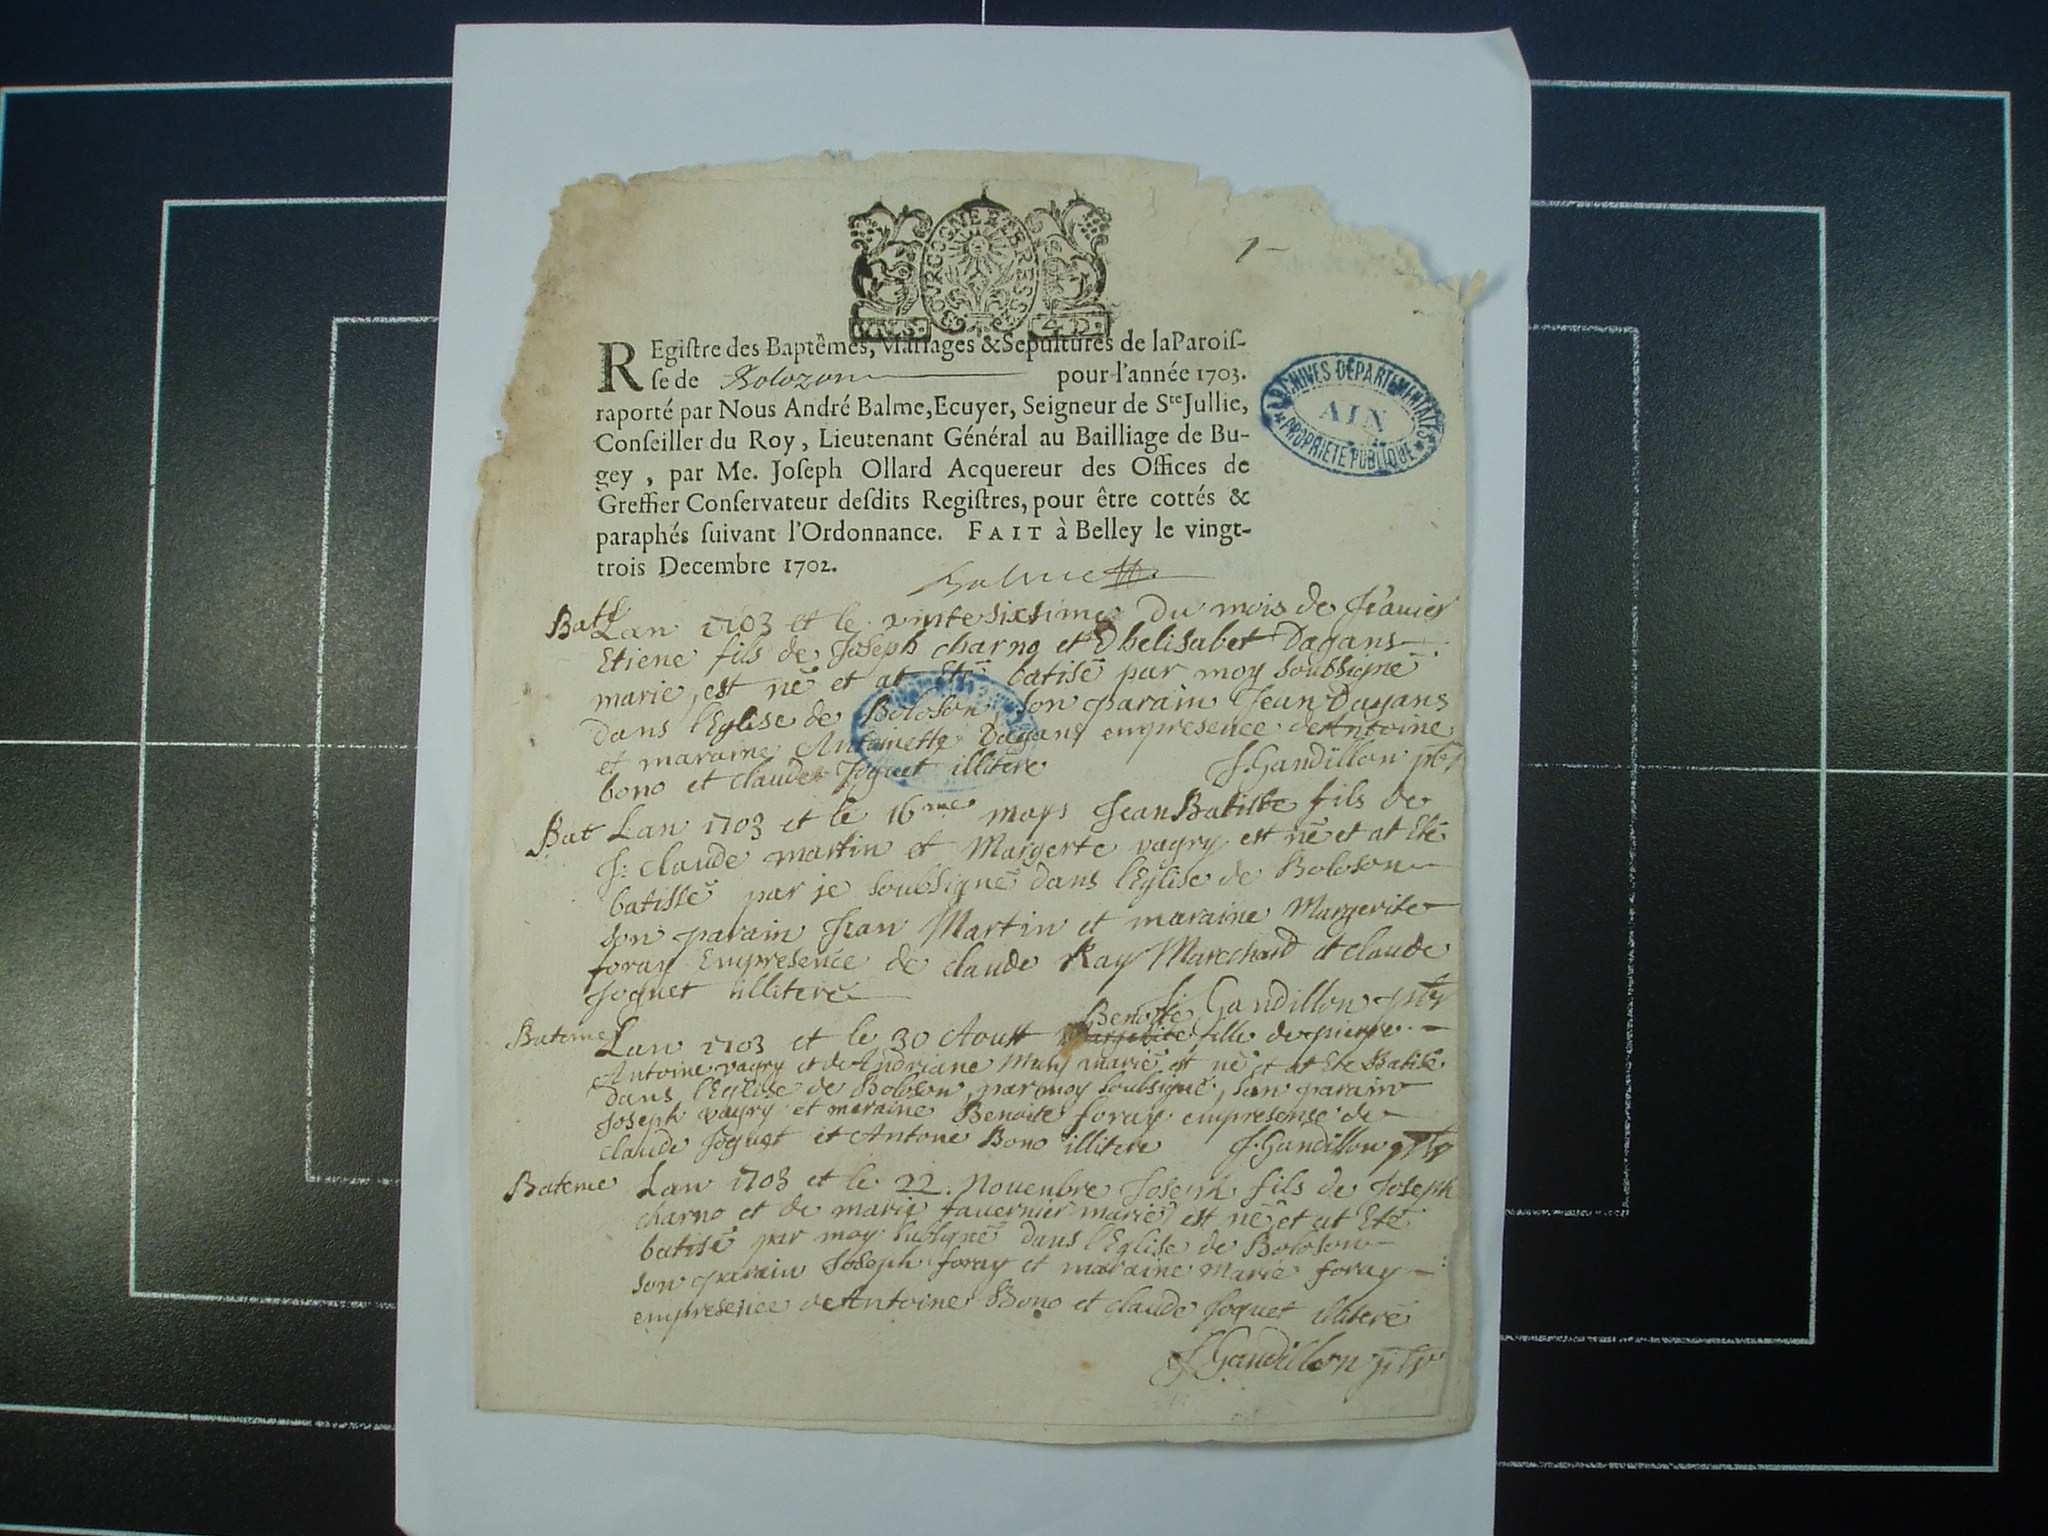 BOURGOGNE ET BRESSE
1
REgiſtre des Baptêmes, Mariages & Sepultures de la Paroiſ-
ſe de Bolozon pour l'année 1703.
raporté par Nous André Balme, Ecuyer, Seigneur de Ste Jullie,
Conſeiller du Roy, Lieutenant Général au Bailliage de Bu-
gey, par Me. Joſeph Ollard Acquereur des Offices de
Greffier Conſervateur deſdits Regiſtres, pour être cottés &
paraphés ſuivant l'Ordonnance. FAIT à Belley le vingt-
trois Decembre 1702.
Balme
ARCHIVES DEPARTEMENTALES
AIN
PROPRIETE PUBLIQUE
Bat Lan 1703 et le vintesixsime du mois de Jeanuier
Etiene fils de Joseph charno et Dhelisabet Dagans
marie, est né et at été batisé par moy soubsigné
dans l'Eglise de Boloson, son parain Jean Dagans
et maraine Antoinette Dagans empresence de Antoine
bono et claude Joquet illitere J. Gandillon ptr
Bat Lan 1703 et le 16me mays Jean Batiste fils de
J: claude martin et Margerte vagry est né et at Eté
batissé par je soubsigné dans l'Eglise de Boloson
son parain Jean Martin et maraine Margerite
foray Empresence de claude Ray Marchand et claude
Joquet illiteré
J. Gandillon ptr
Bateme Lan 1703 et le 30 Aoust Benoite fille de pierre
Antoine vagry et de Andriane marié est né et at Ete Batisé
dans l'Eglise de Boloson, par moy soubsigné, son parain
Joseph vagry et maraine Benoite foray empresense de
claude Joquet et Antoine Bono illitere J. Gandillon ptr
Bateme Lan 1703 et le 22. Nouenbre Joseph fils de Joseph
charno et de marie tauernier marié est né et at Eté
batisé par moy subsigné dans l'Eglise de Boloson
son parain Joseph foray et maraine marie foray
empresence de Antoine Bono et claude Joquet illiteré
J. Gandillon ptr